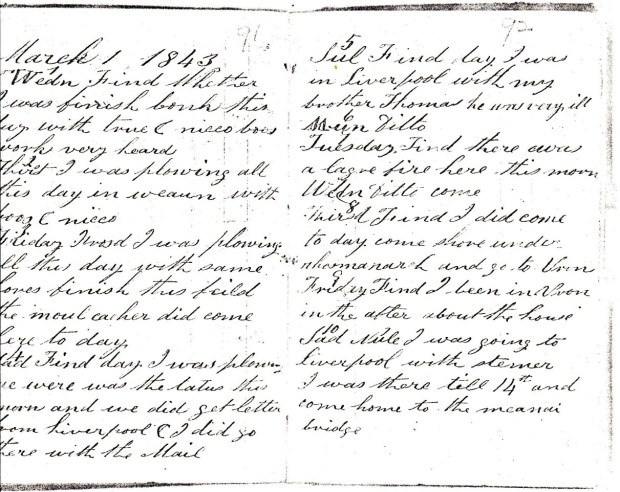 91
March 1 1843
Wedn Find Whether
I was finish bonk this
day with true & nicco boes
work very heard
2
Thirst I was plowing all
this day in weaun with
& nicco
Friday Frosd I was plowing
all this day with same
loves finish this feild
the moul cacher did come
here to day
4
Sad Find day I was plowin
we were was the latus this
morn and we did get letter
from Liverpool & I did go
there with the Mail
92
5
Sul Find day I was
in Liverpool with my
brother Thomas he was very ill
6
Mun Ditto
7
Tuesday Find there was
a lague fire here this morn
Wedn Ditto come
8
Thirsd Find I did come
to day come shove under
and go to Vron
9
Friday Find I been in Vron
in the after about the house
10
Sad Nule I was going to
Liverpool with stemer
I was there till 14st and
come home to the meanai
bridge